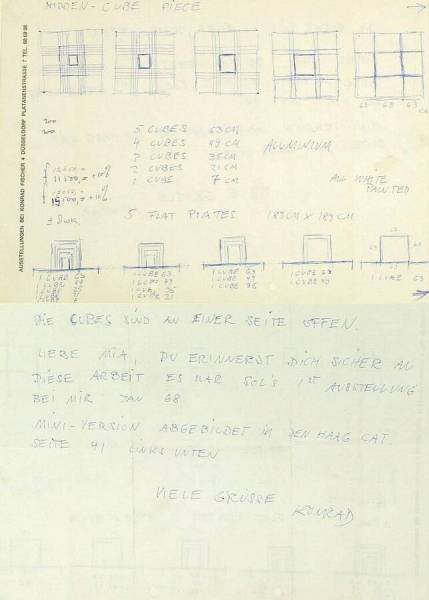 HIDDEN-CUBE PIECE
AUSSTELLUNGEN BEI KONRAD FISCHER 4 DÜSSELDORF PLATANENSTRASSE 7 TEL.
63 63 63
CM
5 CUBES 63 CM
4 CUBES 49 CM
3 CUBES 35 CM
2 CUBES 21 CM
1 CUBE 7 CM
ALUMINIUM
ALL WHITE
PAINTED
5 FLAT PLATES 189 CM X 189 CM
63
63 63
1 CUBE 63
1 CUBE 49
1 CUBE 35
1 CUBE 21
1 CUBE 63
1 CUBE 49
1 CUBE 35
1 CUBE 21
1 CUBE 63
1 CUBE 49
1 CUBE 35
1 CUBE 63
1 CUBE 49
1 CUBE 63
DIE CUBES SIND AN EINER SEITE OFFEN.
LIEBE MIA, DU ERINNERST DICH SICHER AN
DIESE ARBEIT ES WAR SOL'S 1ST AUSSTELLUNG
BEI MIR JAN 68.
MINI-VERSION ABGEBILDET IN DEN HAAG CAT.
SEITE 41 LINKS UNTEN
VIELE GRÜSSE
KONRAD